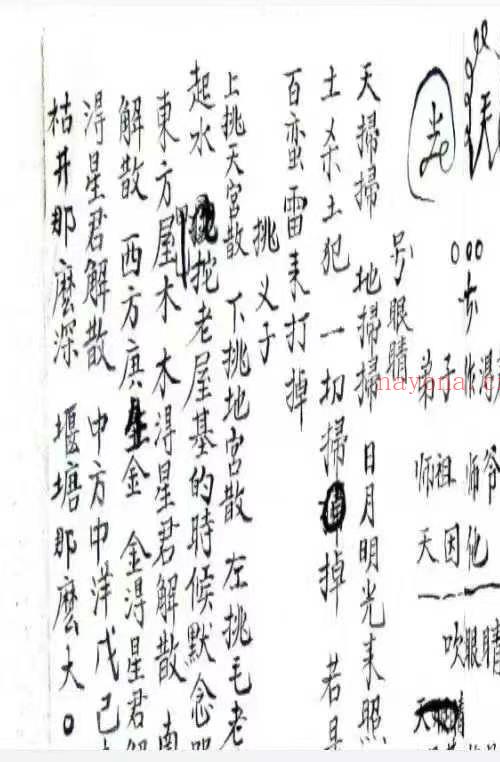 天
○○○
步
弟子
师祖 师爷
天因化
吹眼睛
号眼睛
天掃掃 地掃掃 日月明光来照
土杀土犯 一切掃掉 若是
百蛮雷来打掉
挑义子
上挑天宮散 下挑地宮散 左挑毛老
起水 挖老屋基的時候默念
東方屋木 木淂星君解散 南
解散 西方庚金 金淂星君解
淂星君解散 中方中洋戊己
枯井那麽深 堰塘那麽大。
nayona.c